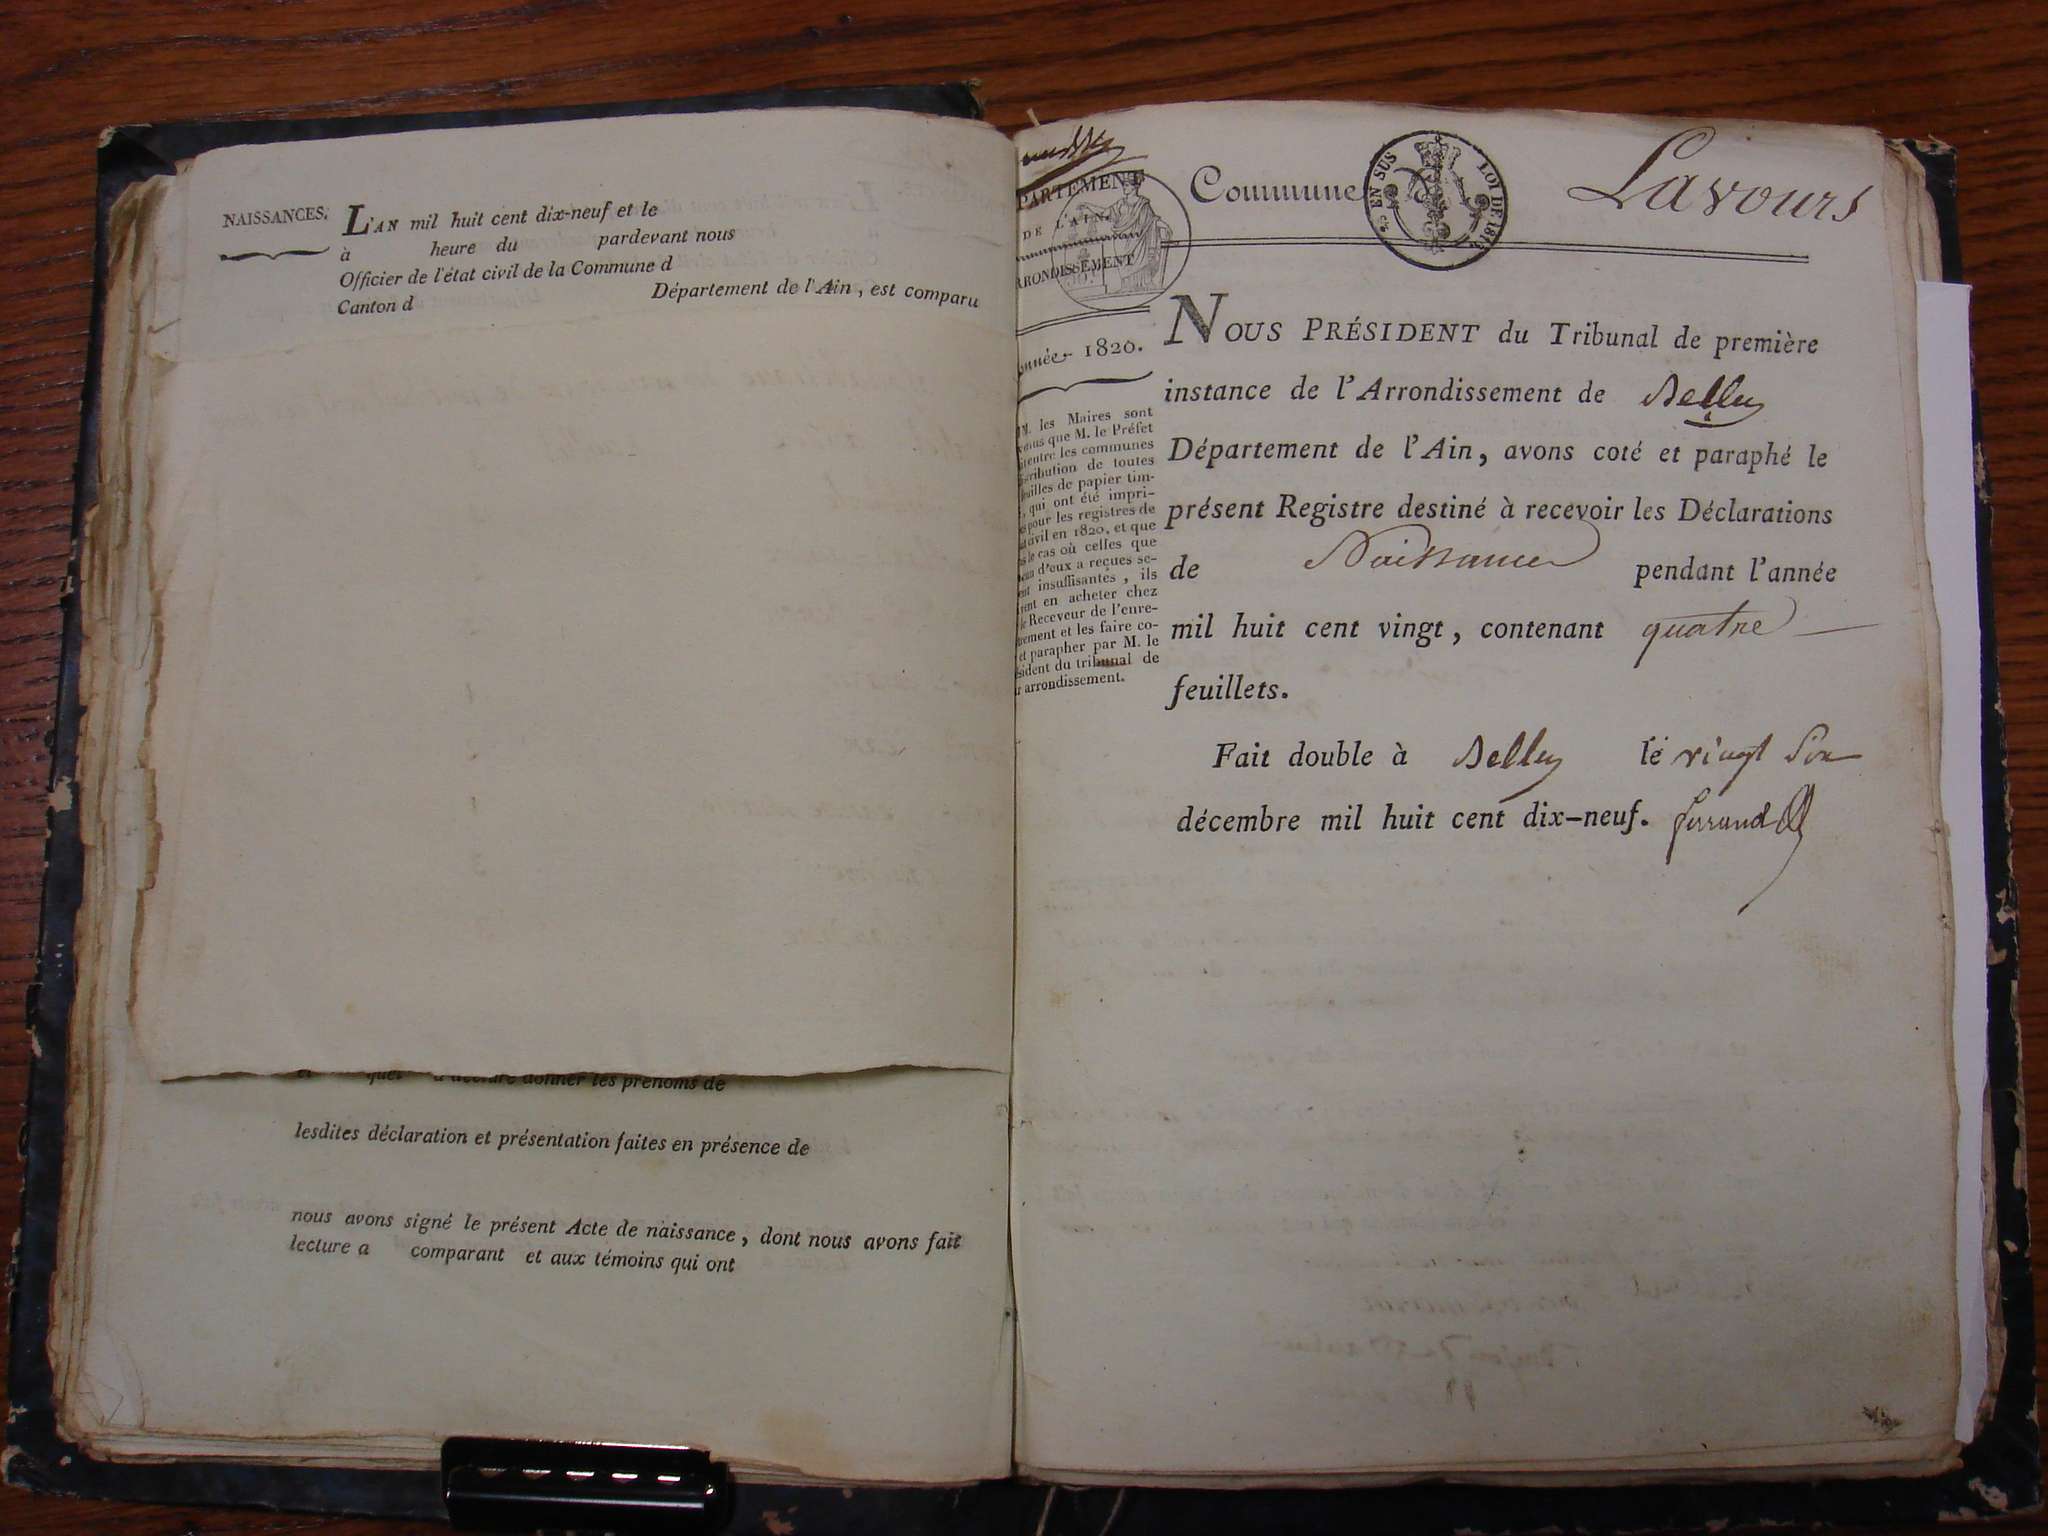 NAISSANCES.
L'AN mil huit cent dix-neuf et le
à heure du pardevant nous
Officier de l'état civil de la Commune d
Canton d Département de l'Ain, est comparu
donner les prénoms de
lesdites déclaration et présentation faites en présence de
nous avons signé le présent Acte de naissance, dont nous avons fait
lecture a comparant et aux témoins qui ont
PARTEMENT
DE L'AIN.
RRONDISSEMENT
Commune
EN SUS LOI DE 1816
Lavours
nnée 1820.
M. les Maires sont
que M. le Préfet
entre les communes
tribution de toutes
euilles de papier tim-
, qui ont été impri-
pour les registres de
civil en 1820, et que
le cas où celles que
d'eux a reçues se-
ent insuffisantes, ils
vent en acheter chez
le Receveur de l'enre-
trement et les faire co-
et parapher par M. le
sident du tribunal de
r arrondissement.
NOUS PRÉSIDENT du Tribunal de première
instance de l'Arrondissement de Belley
Département de l'Ain, avons coté et paraphé le
présent Registre destiné à recevoir les Déclarations
de Naissances pendant l'année
mil huit cent vingt, contenant quatre
feuillets.
Fait double à Belley le vingt six
décembre mil huit cent dix-neuf. ferrand